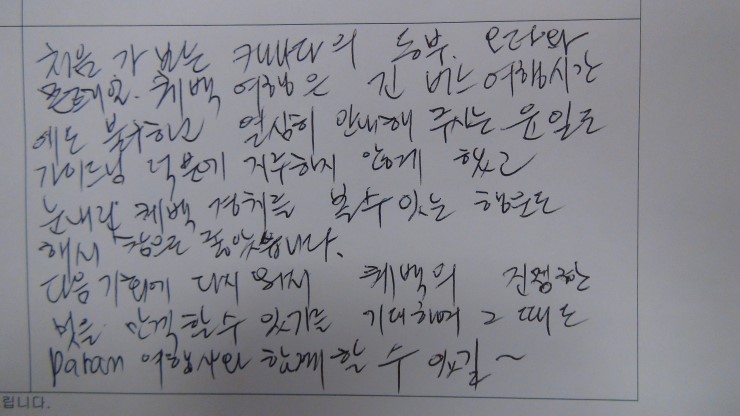 처음 가 보는 캐나다의 동부. 오타와
몬트리올. 퀘백 여행은 긴 버스여행시간
에도 불구하고 열심히 안내해 주시는 윤일로
가이드님 덕분에 지루하지 않게 했고
눈내린 퀘백 경치를 볼수 있는 행운도
해서 참으로 좋았습니다.
다음 기회에 다시 와서 퀘백의 진정한
멋을 만끽할수 있기를 기대하며 그 때도
Paran 여행사와 함께 할 수 있길~
립니다.